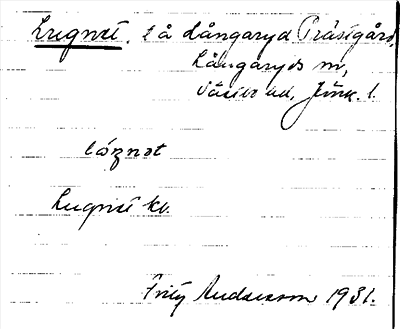 Lugnet. t å Långaryd Prästgård,
Långaryds sn,
Västbo hd, Jönk. l.
lógnət
Lugnet kv.
Fritz Andersson 1931.